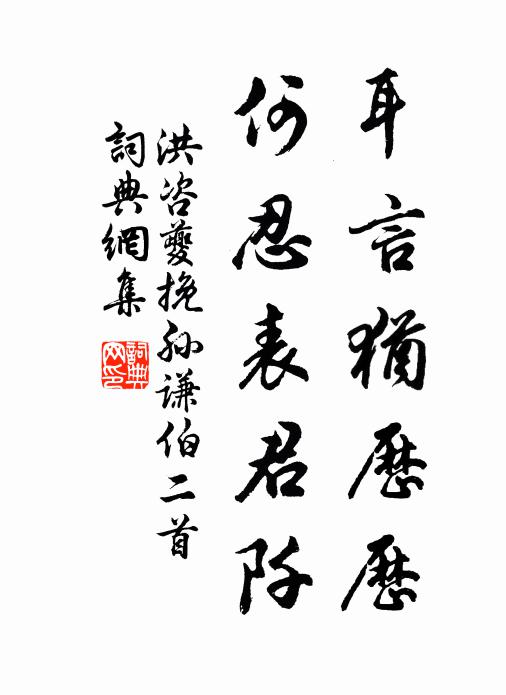 耳言猶歷歷
何忍表君阡
洪咨夔挽孙謙伯二首
詞典網集
詞典網印